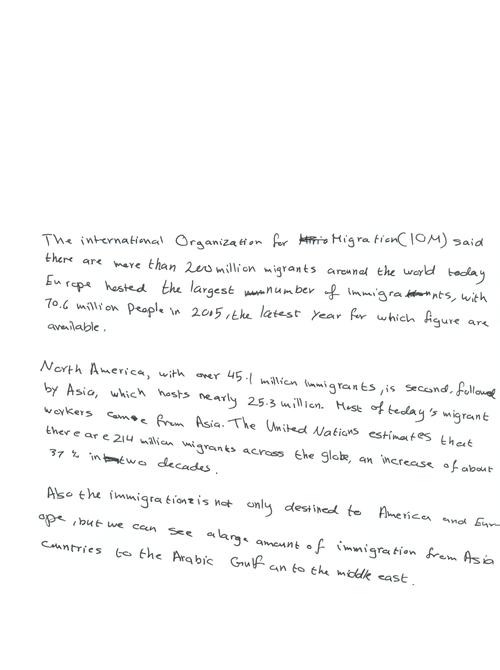 The international Organization for Migration (IOM) said
there are more than 200 million migrants around the world today
Europe hosted the largest number of immigrants, with
70.6 million People in 2005, the latest year for which figure are
available.
North America, with over 45.1 million immigrants, is second. followed
by Asia, which hosts nearly 25.3 million. Most of today's migrant
workers come from Asia. The United Nations estimates that
there are 214 million migrants across the globe, an increase of about
37 % in two decades.
Also the immigration is not only destined to America and Eur-
ope, but we can see a large amount of immigration from Asia
countries to the Arabic Gulf an to the middle east.